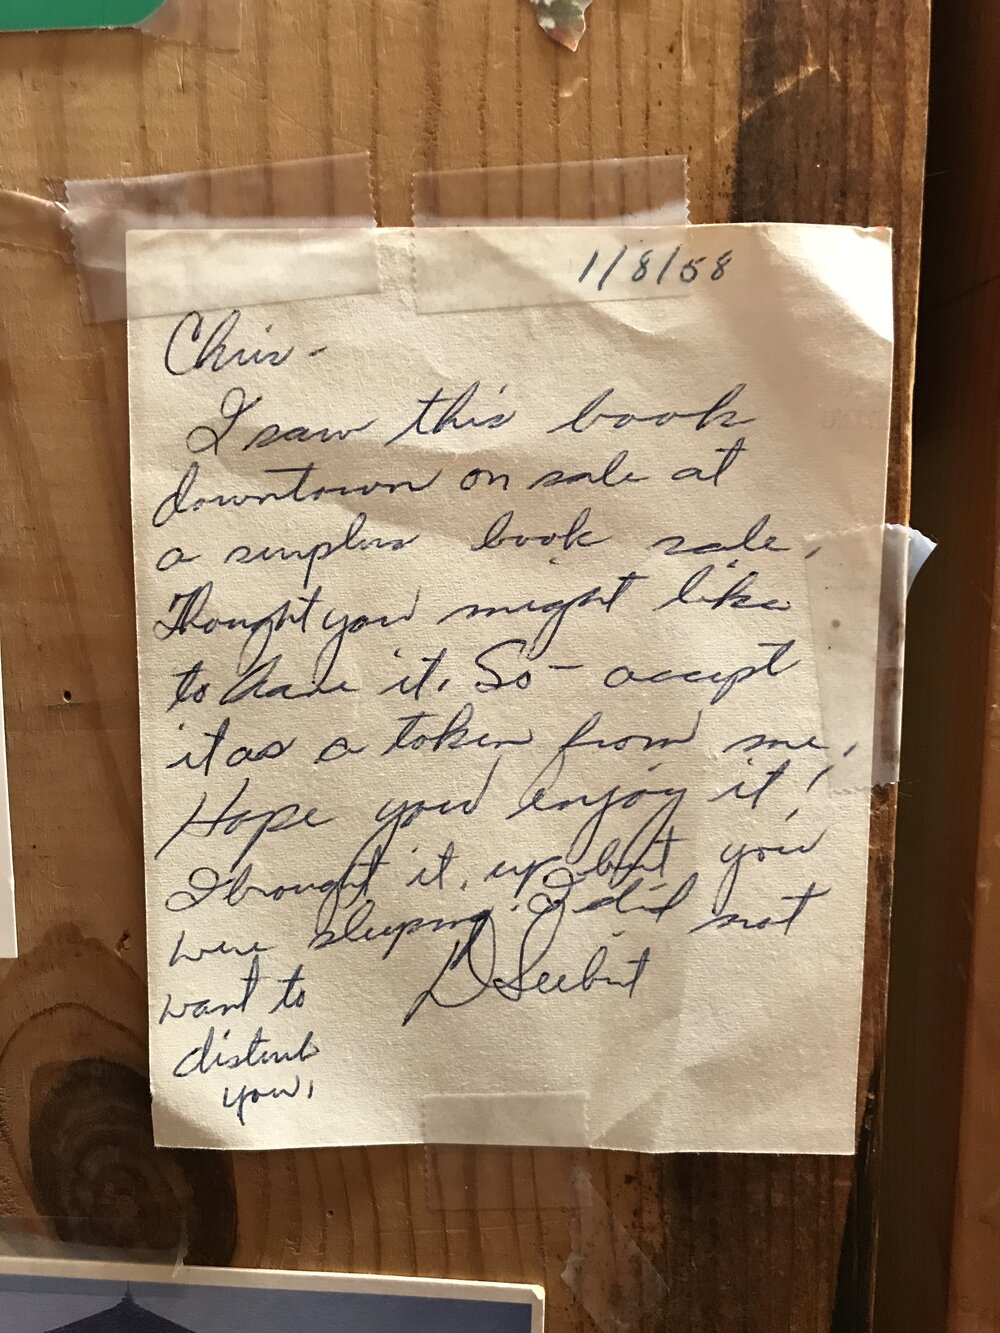 1/8/58
Chris-
I saw this book
downtown on sale at
a surplus book sale.
Thought you might like
to have it. So - accept
it as a token from me.
Hope you enjoy it!
I brought it, up, but you
were sleeping. I did not
want to
disturb
you.
D Seebut